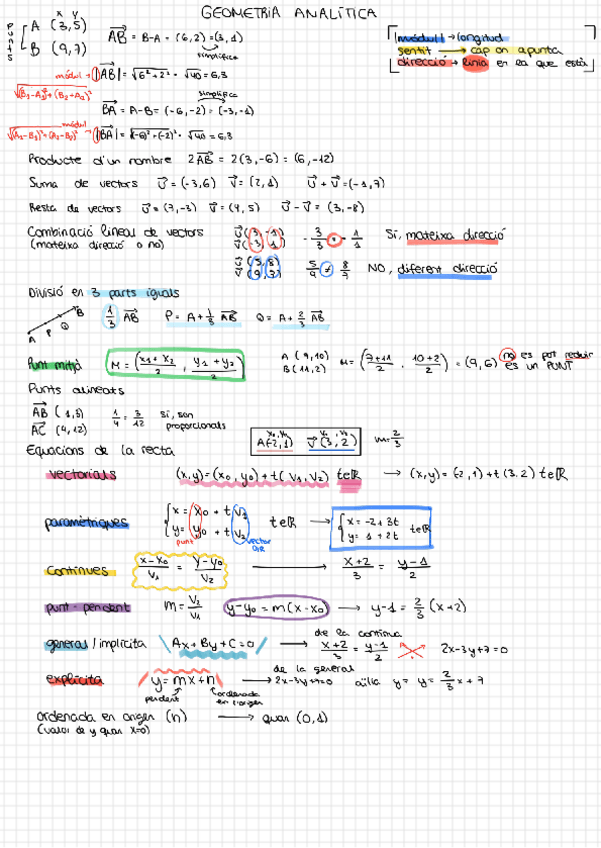 GEOMETRIA ANALÍTICA
x y
punts
A (3,5)
B (9,7)
AB = B-A = (6,2) = (3,1)
simplifica
mòdul → |AB| = √6²+2² = √40 = 6,3
BA = A-B = (-6,-2) = (-3,-1)
simplifica
mòdul
|BA| = √(-6)²+(-2)² = √40 = 6,3
mòdul → longitud
sentit → cap on apunta
direcció → línia en la que està
Producte d'un nombre 2AB = 2(3,-6) = (6,-12)
Suma de vectors U = (-3,6) V = (2,1) U + V = (-1,7)
Resta de vectors U = (7,-3) V = (4,5) U - V = (3,-8)
Combinació lineal de vectors
(mateixa direcció o no)
Sí, mateixa direcció
NO, diferent direcció
Divisió en 3 parts iguals
A P Q B
1/3 AB P = A + 1/3 AB Q = A + 2/3 AB
Punt mitjà M = (x1 + x2 / 2 , y1 + y2 / 2)
A (9,10)
B (11,2)
M = (7+11 / 2 , 10+2 / 2) = (9,6) no es pot reduir
és un PUNT
Punts alineats
AB (1,3)
AC (4,12)
1/4 = 3/12 sí, són
proporcionals
Equacions de la recta
x₀,y₀ v₁ v₂
A(-2,1) V(3,2) m = 2/3
vectorials (x,y) = (x₀,y₀) + t(v₁,v₂) t∈ℝ → (x,y) = (-2,1) + t(3,2) t∈ℝ
paramètriques
x = x₀ + t v₁
y = y₀ + t v₂
t∈ℝ
punt
vector
dir
→ x = -2+3t
y = 1+2t
t∈ℝ
contínues x-x₀ / v₁ = y-y₀ / v₂ → x+2 / 3 = y-1 / 2
punt-pendent m = v₂/v₁ y-y₀ = m(x-x₀) → y-1 = 2/3 (x+2)
general/implícita Ax+By+C=0 →
de la contínua
x+2 / 3 = y-1 / 2 2x-3y+7=0
explícita y = mx+n
pendent
ordenada
en l'origen
de la general
→ 2x-3y+7=0 aïlla y y = 2/3 x + 7
ordenada en origen (n) → quan (0,1)
(valor de y quan x=0)